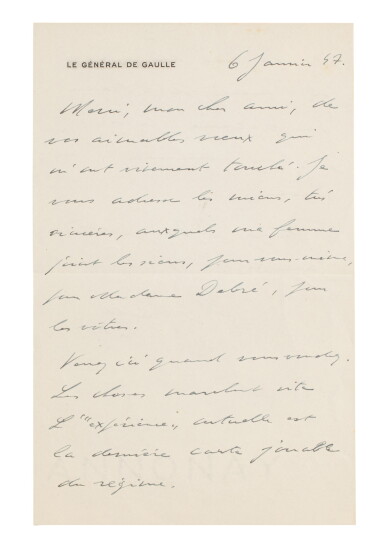 LE GÉNÉRAL DE GAULLE
6 Janvier 47.
Merci, mon cher ami, de
vos aimables vœux qui
m'ont vivement touché. Je
vous adresse les miens, très
sincères, auxquels ma femme
joint les siens, pour vous-même,
pour Madame Debré, pour
les vôtres.
Venez ici quand vous voudrez.
Les choses marchent vite
L'"expérience" actuelle est
la dernière carte jouable
du régime.